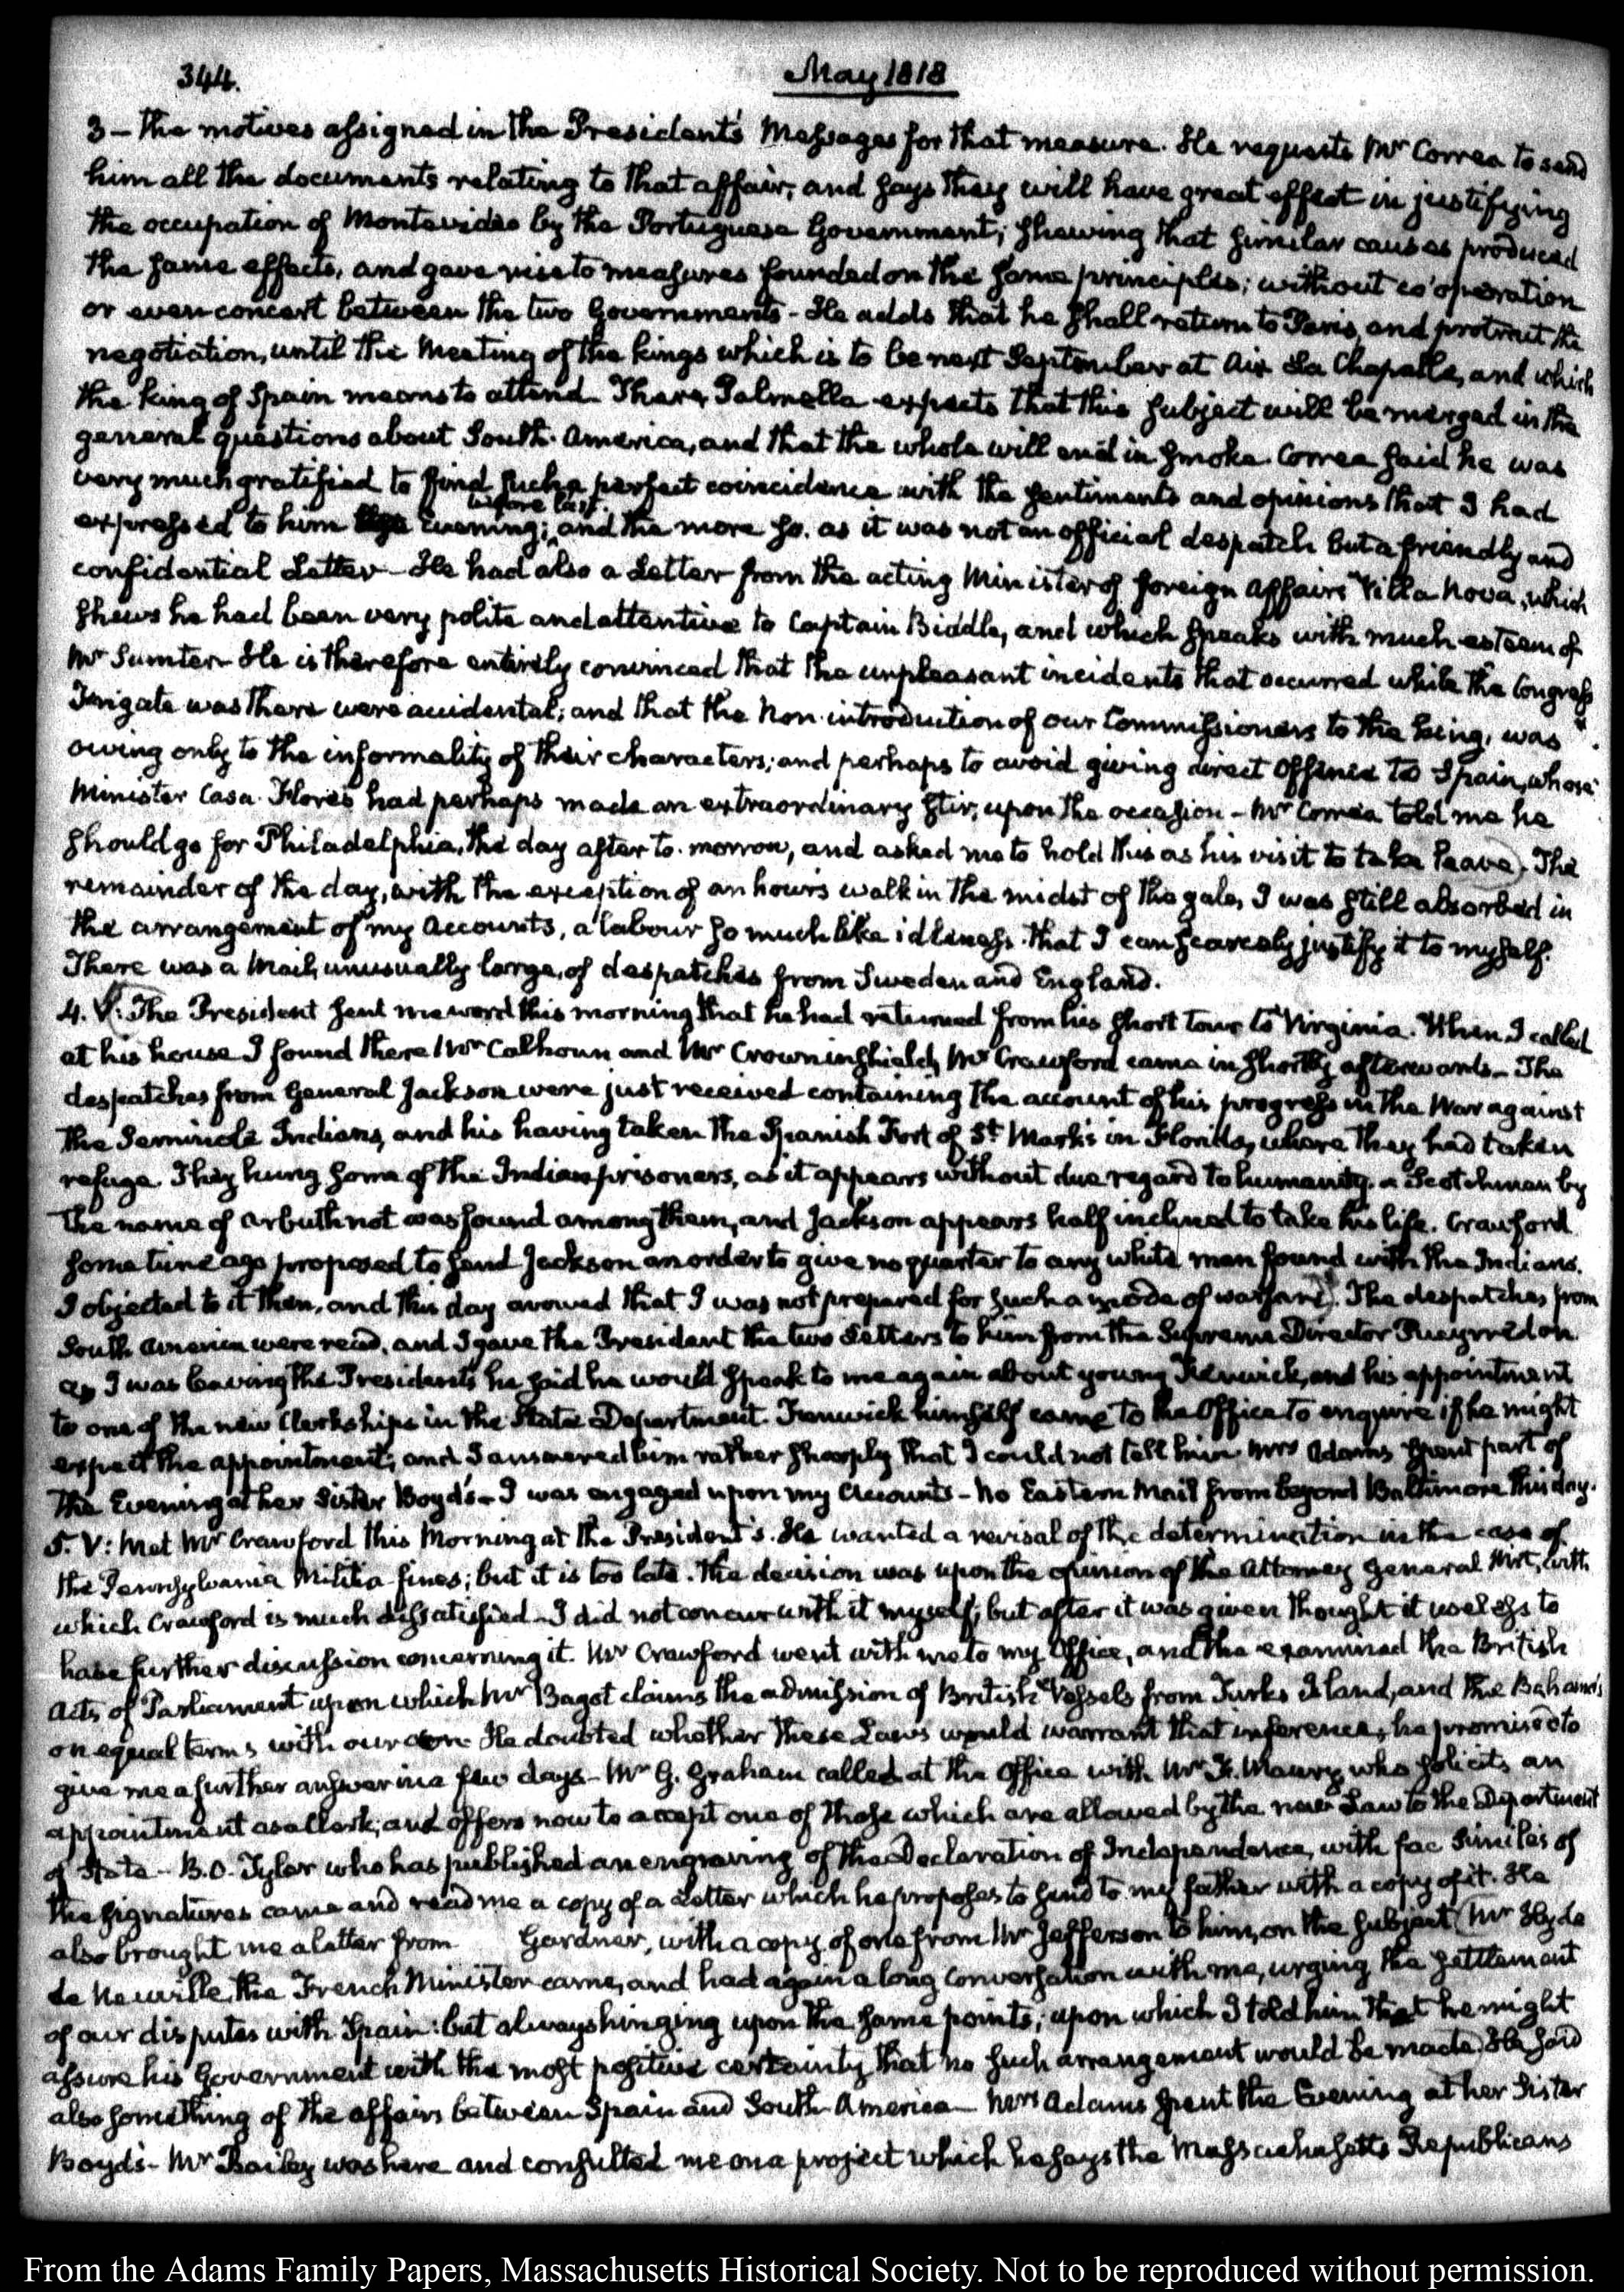 344.
May 1818
3 - the motives assigned in the President's Messages for that measure. He requests Mr Correa to send
him all the documents relating to that affair, and says they will have great effect in justifying
the occupation of Montevideo by the Portuguese Government; shewing that similar causes produced
the same effects, and gave rise to measures founded on the same principles; without co'operation
or even concert between the two Governments - He adds that he shall return to Paris, and protract the
negotiation, until the Meeting of the kings which is to be next September at Aix La Chapelle, and which
the king of Spain means to attend. There, Palmella expects that this subject will be merged in the
general questions about South-America, and that the whole will end in smoke. Correa said he was
very much gratified to find such a perfect coincidence with the sentiments and opinions that I had
before last.
expressed to him Evening; and the more so. as it was not an official despatch but a friendly and
confidential Letter - He had also a Letter from the acting Minister of foreign affairs Villa Nova, which
shews he had been very polite and attentive to Captain Biddle, and which speaks with much esteem of
Mr Sumter. He is therefore entirely convinced that the unpleasant incidents that occurred while the Congress
Frigate was there were accidental; and that the Non-introduction of our Commissioners to the king, was
owing only to the informality of their characters; and perhaps to avoid giving direct offence to Spain, whose
Minister Casa-Flores had perhaps made an extraordinary stir, upon the occasion - Mr Correa told me he
should go for Philadelphia, the day after to-morrow, and asked me to hold this as his visit to take leave. The
remainder of the day, with the exception of an hour's walk in the midst of the gale, I was still absorbed in
the arrangement of my Accounts, a labour so much like idleness that I can scarcely justify it to myself.
There was a Mail, unusually large, of despatches from Sweden and England.
4. V: The President sent me word this morning that he had returned from his short tour to Virginia. When I called
at his house I found there Mr Calhoun and Mr Crowninshield, Mr Crawford came in shortly afterwards - The
despatches from General Jackson were just received containing the account of his progress in the War against
the Seminole Indians, and his having taken the Spanish Fort of St Mark's in Florida, where they had taken
refuge. They hung some of the Indian prisoners, as it appears without due regard to humanity. a Scotchman by
the name of Arbuthnot was found among them, and Jackson appears half inclined to take his life. Crawford
some time ago proposed to send Jackson an order to give no quarter to any white man found with the Indians.
I objected to it then, and this day avowed that I was not prepared for such a mode of warfare. The despatches from
South America were read, and I gave the President the two Letters to him from the Supreme Director Pueyrredon
as I was leaving the President's he said he would speak to me again about young Fenwick, and his appointment
to one of the new Clerkships in the State Department. Fenwick himself came to the Office to enquire if he might
expect the appointment; and I answered him rather sharply that I could not tell him Mrs Adams spent part of
the Evening at her Sister Boyd's - I was engaged upon my Accounts - No Eastern Mail from beyond Baltimore this day.
5. V: Met Mr Crawford this Morning at the President's. He wanted a revisal of the determination in the case of
the Pennsylvania Militia fines; but it is too late. The decision was upon the opinion of the Attorney General Wirt, with
which Crawford is much dissatisfied - I did not concur with it myself; but after it was given thought it useless to
have further discussion concerning it. Mr Crawford went with me to my Office, and the examined the British
Acts of Parliament upon which Mr Bagot claims the admission of British Vessels from Turks Island, and the Bahamas
on equal terms with our own He doubted whether these Laws would warrant that inference; he promised to
give me a further answer in a few days - Mr G. Graham called at the Office with Mr F. Maury who solicits an
appointment as a Clerk; and offers now to accept one of those which are allowed by the new Law to the Department
of State - B. O. Tyler who has published an engraving of the Declaration of Independence, with fac similes of
the signatures came and read me a copy of a Letter which he proposes to send to my father with a copy of it. He
also brought me a letter from Gardner, with a copy of one from Mr Jefferson to him, on the subject Mr Hyde
de Neuville, the French Minister came, and had again a long conversation with me, urging the settlement
of our disputes with Spain: but always hinging upon the same points; upon which I told him that he might
assure his Government with the most positive certainty that no such arrangement would be made. He said
also something of the affairs between Spain and South-America - Mrs Adams spent the Evening at her Sister
Boyd's - Mr Bailey was here and consulted me on a project which he says the Massachusetts Republicans
From the Adams Family Papers, Massachusetts Historical Society. Not to be reproduced without permission.